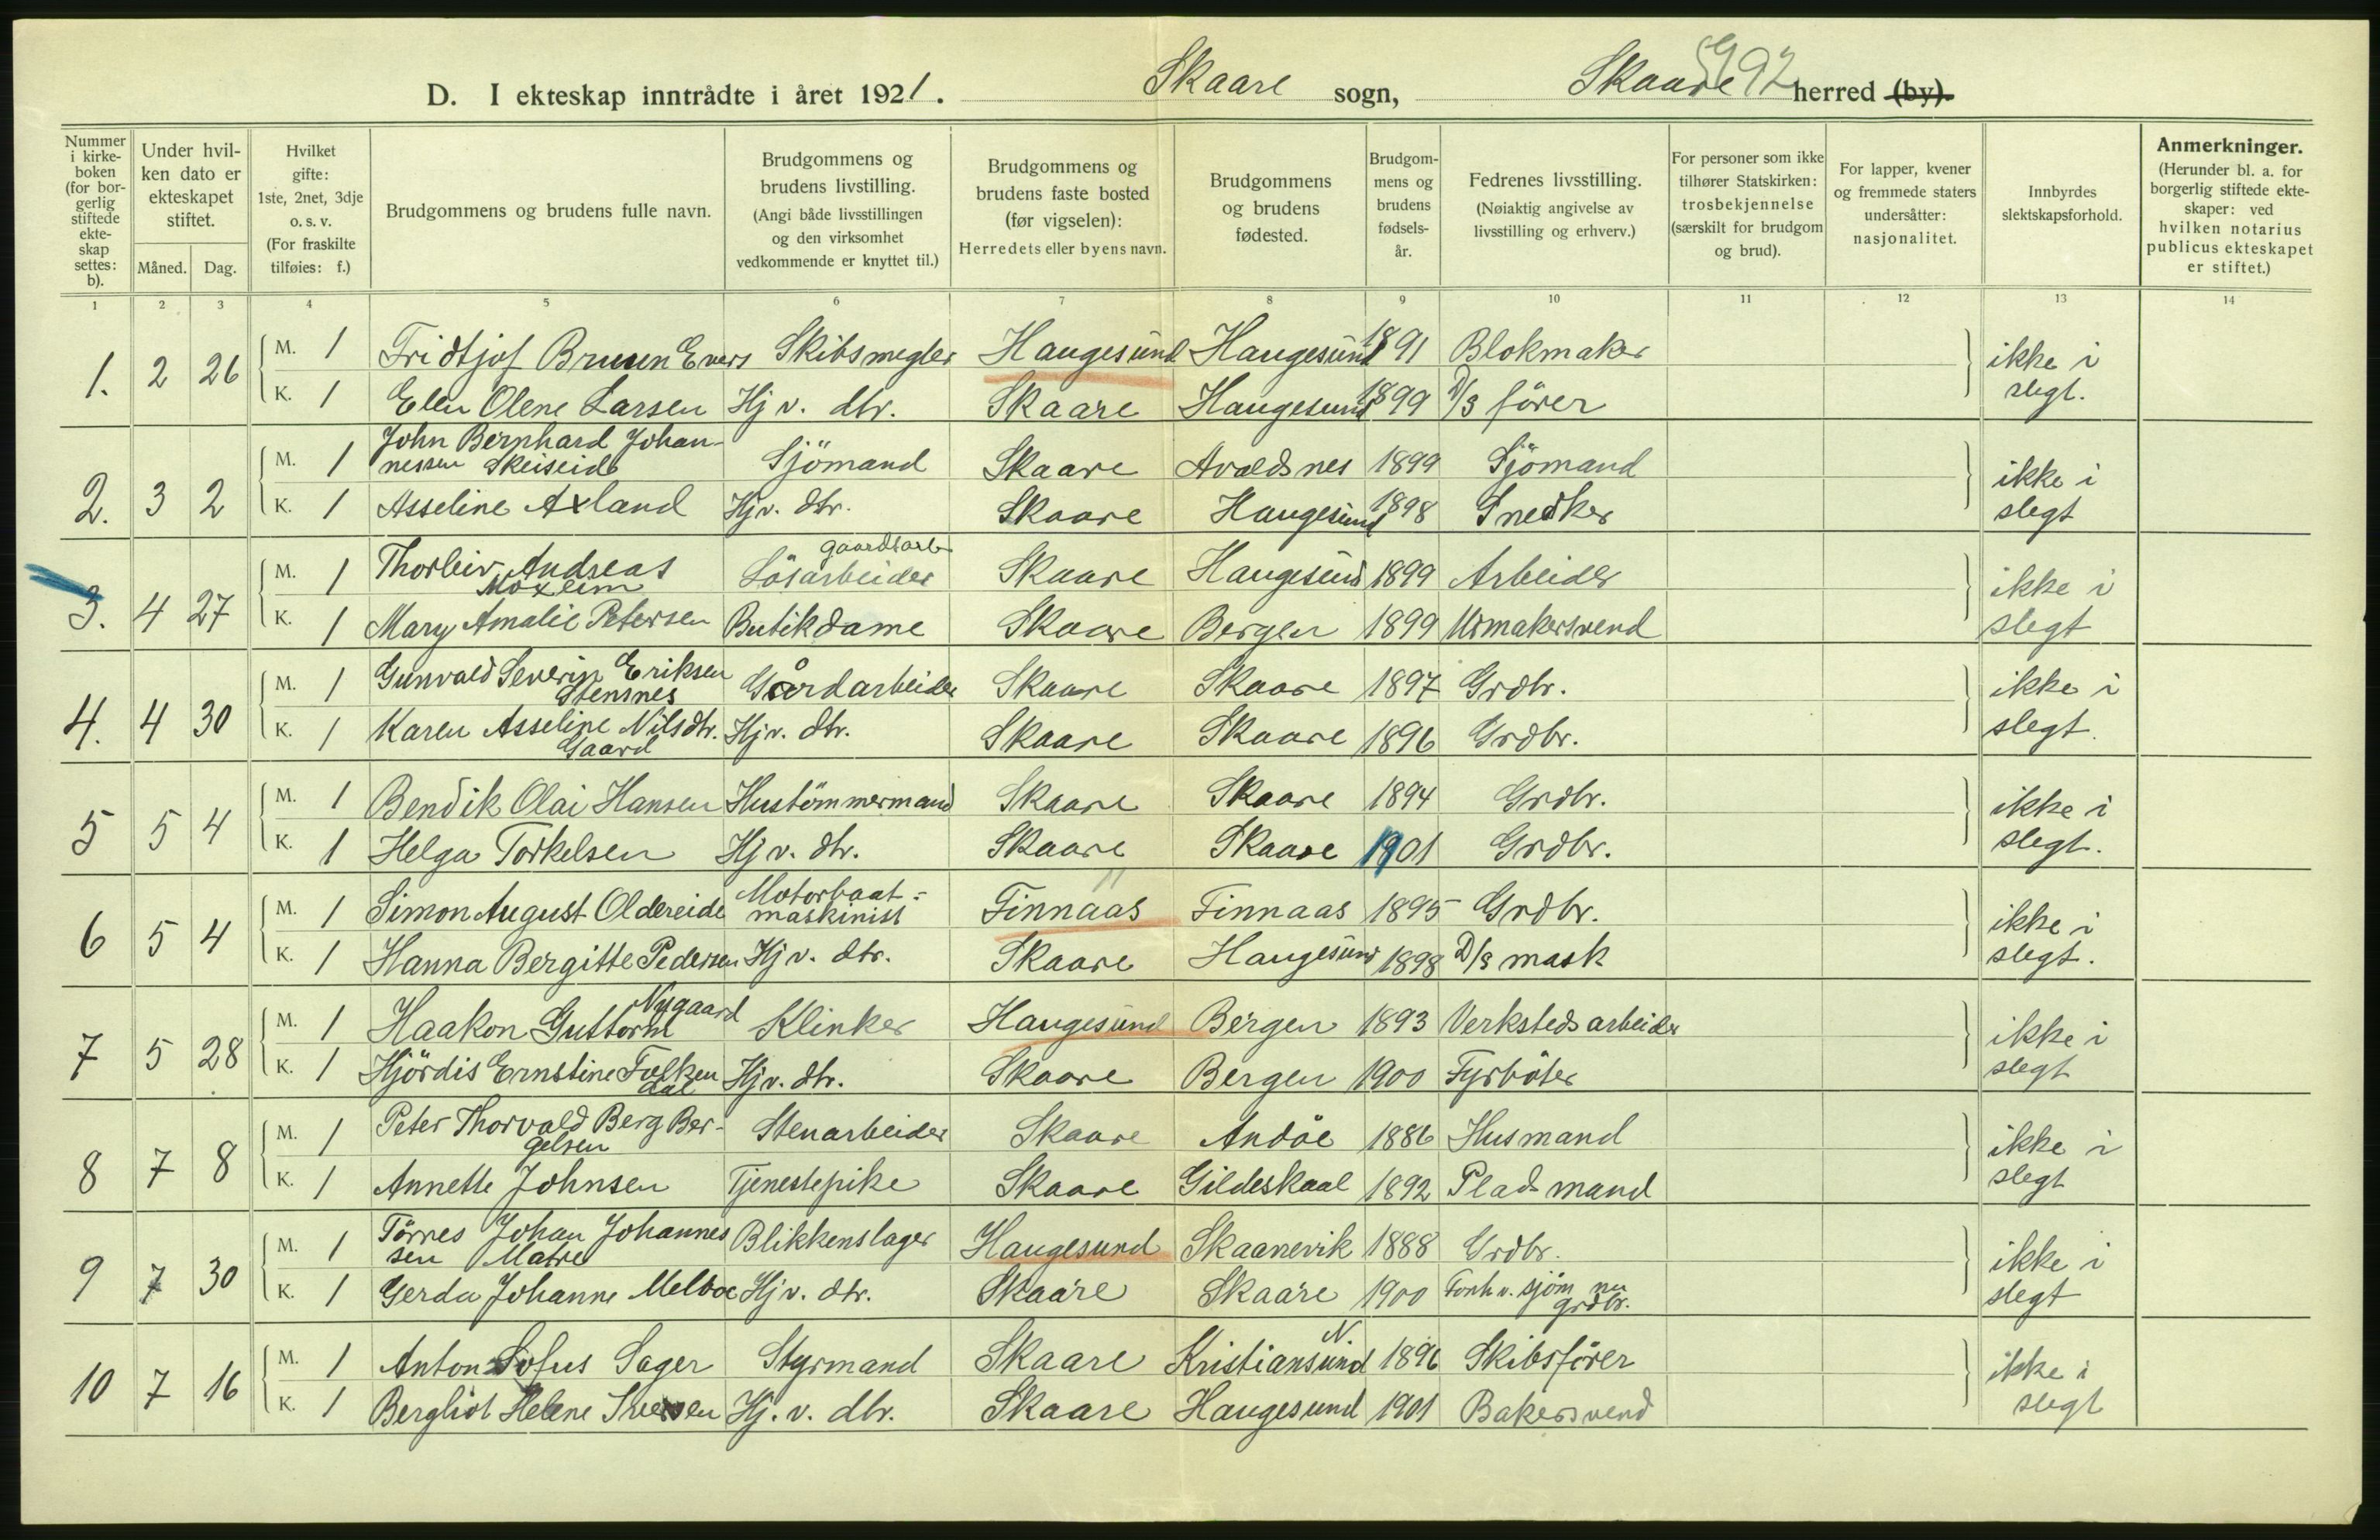 D. I ekteskap inntrådte i året 1921. Skaare sogn, Skaare herred (by).
5992
Nummer i kirkeboken (for borgerlig stiftede ekteskap settes: b).
Under hvilken dato er ekteskapet stiftet.
Måned. Dag.
Hvilket gifte: 1ste, 2net, 3dje o. s. v. (For fraskilte tilføies: f.)
Brudgommens og brudens fulle navn.
Brudgommens og brudens livstilling. (Angi både livsstillingen og den virksomhet vedkommende er knyttet til.)
Brudgommens og brudens faste bosted (før vigselen): Herredets eller byens navn.
Brudgommens og brudens fødested.
Brudgommens og brudens fødselsår.
Fedrenes livsstilling. (Nøiaktig angivelse av livsstilling og erhverv.)
For personer som ikke tilhører Statskirken: trosbekjennelse (særskilt for brudgom og brud).
For lapper, kvener og fremmede staters undersåtter: nasjonalitet.
Innbyrdes slektskapsforhold.
Anmerkninger. (Herunder bl. a. for borgerlig stiftede ekteskaper: ved hvilken notarius publicus ekteskapet er stiftet.)
1 2 3 4 5 6 7 8 9 10 11 12 13 14
1. 2 26 M. 1 Fridtjof Bruun Evers Skibsmegler Haugesund Haugesund 1891 Blokmaker ikke i slegt.
K. 1 Elen Olene Larsen Hj v. dtr. Skaare Haugesund 1899 D/s förer
2. 3 2 M. 1 John Bernhard Johannessen Skeiseid Sjömand Skaare Avaldsnes 1899 Sjömand ikke i slegt
K. 1 Asseline Axland Hjv. dtr. Skaare Haugesund 1898 Snedker
3. 4 27 M. 1 Thorleiv Andreas Moxeim Lösarbeider gaardsarb Skaare Haugesund 1899 Arbeider ikke i slegt
K. 1 Mary Amalie Petersen Butikdame Skaare Bergen 1899 Urmakersvend
4. 4 30 M. 1 Gunvald Severin Eriksen Stensnes Gårdarbeider Skaare Skaare 1897 Grdbr. ikke i slegt.
K. 1 Karen Asseline Nilsdtr. Gaard Hjv. dtr. Skaare Skaare 1896 Grdbr.
5 5 4 M. 1 Bendik Olai Hansen Hustömmermand Skaare Skaare 1894 Grdbr. ikke i slegt.
K. 1 Helga Torkelsen Hj v. dtr. Skaare Skaare 1901 Grdbr.
6 5 4 M. 1 Simon August Oldereide Motorbaat=maskinist Finnaas Finnaas 1895 Grdbr. ikke i slegt.
K. 1 Hanna Bergitte Pedersen Hj v. dtr. Skaare Haugesund 1898 D/s mask
7 5 28 M. 1 Haakon Guttorm Nygaard Klinker Haugesund Bergen 1893 Verkstedsarbeider ikke i slegt
K. 1 Hjördis Ernstine Falkendal Hjv. dtr. Skaare Bergen 1900 Fyrböter
8 7 8 M. 1 Peter Thorvald Berg Bergelsen Stenarbeider Skaare Andöe 1886 Husmand ikke i slegt
K. 1 Annette Johnsen Tjenestepike Skaare Gildeskaal 1892 Pladsmand
9 7 30 M. 1 Törres Johan Johannessen Matre Blikkenslager Haugesund Skaanevik 1888 Grdbr. ikke i slegt
K. 1 Gerda Johanne Melboe Hj v. dtr. Skaare Skaare 1900 Forh v. sjöm nu grdbr.
10 7 16 M. 1 Anton Sofus Sager Styrmand Skaare Kristiansund N 1896 Skibsförer ikke i slegt
K. 1 Bergliot Helene Iversen Hj. v. dtr. Skaare Haugesund 1901 Bakersvend